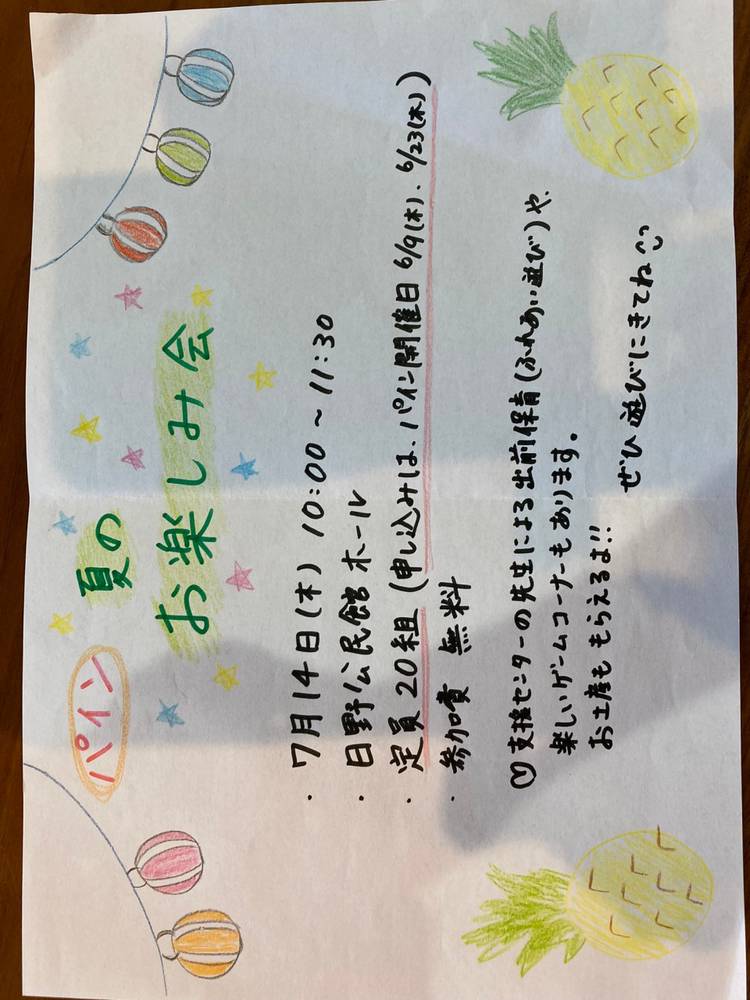 パイン
夏の
お楽しみ会
・7月14日(木) 10:00～11:30
・日野公民館 ホール
・定員20組(申し込みは、パイン開催日 6/9(木)、6/23(木))
・参加費 無料
♡支援センターの先生による出前保育(ふれあい遊び)や、
楽しいゲームコーナーもあります。
お土産も もらえるよ!!
ぜひ遊びにきてね